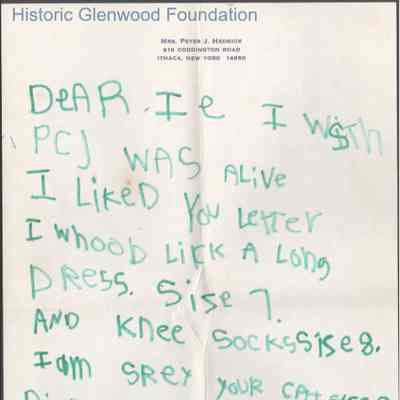 Historic Glenwood Foundation
MRS. PETER J. HEDRICK
616 CODDINGTON ROAD
ITHACA, NEW YORK 14850
DeAR. Ie I WiSTh
PCJ WAS ALiVe
I LikeD You LeTTer
I whooD LicK A Long
DRess. Sise 7.
AND Knee SOCKSSise8.
I am SRey YOUR CAT